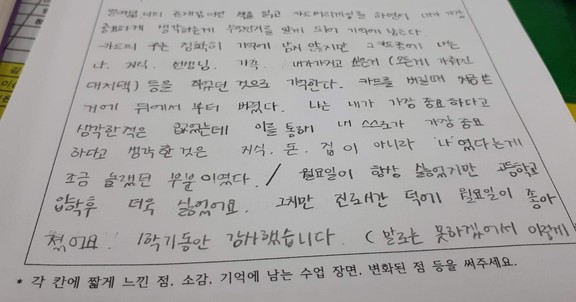 존재같이란 책을 읽고 카드버리게임을 하면서 내가 가장
중요하게 생각하는게 무엇인지를 알게 되어 기억에 남는다.
카드의 수는 정확히 기억에 남지 않지만 그 카드중에 나는
나. 지식. 선생님. 가족. 내가가지고 돈
대저택) 등을 적었던 것으로 기억한다. 카드를 버릴때 적은
거에 뒤에서 부터 버렸다. 나는 내가 가장 중요하다고
생각한적은 없었는데 이를 통해 내 스스로가 가장 중요
하다고 생각한것은 지식. 돈. 집이 아니라 '나'였다는게
조금 놀랬던 부분이였다. / 월요일이 항상 싫었지만 고등학교
입학후 더욱 싫었어요. 그치만 진로시간 덕에 월요일이 좋아
졌어요. 1학기동안 감사했습니다. (말로는 못하겠어서 이렇게
* 각 칸에 짧게 느낀 점, 소감, 기억에 남는 수업 장면, 변화된 점 등을 써주세요.